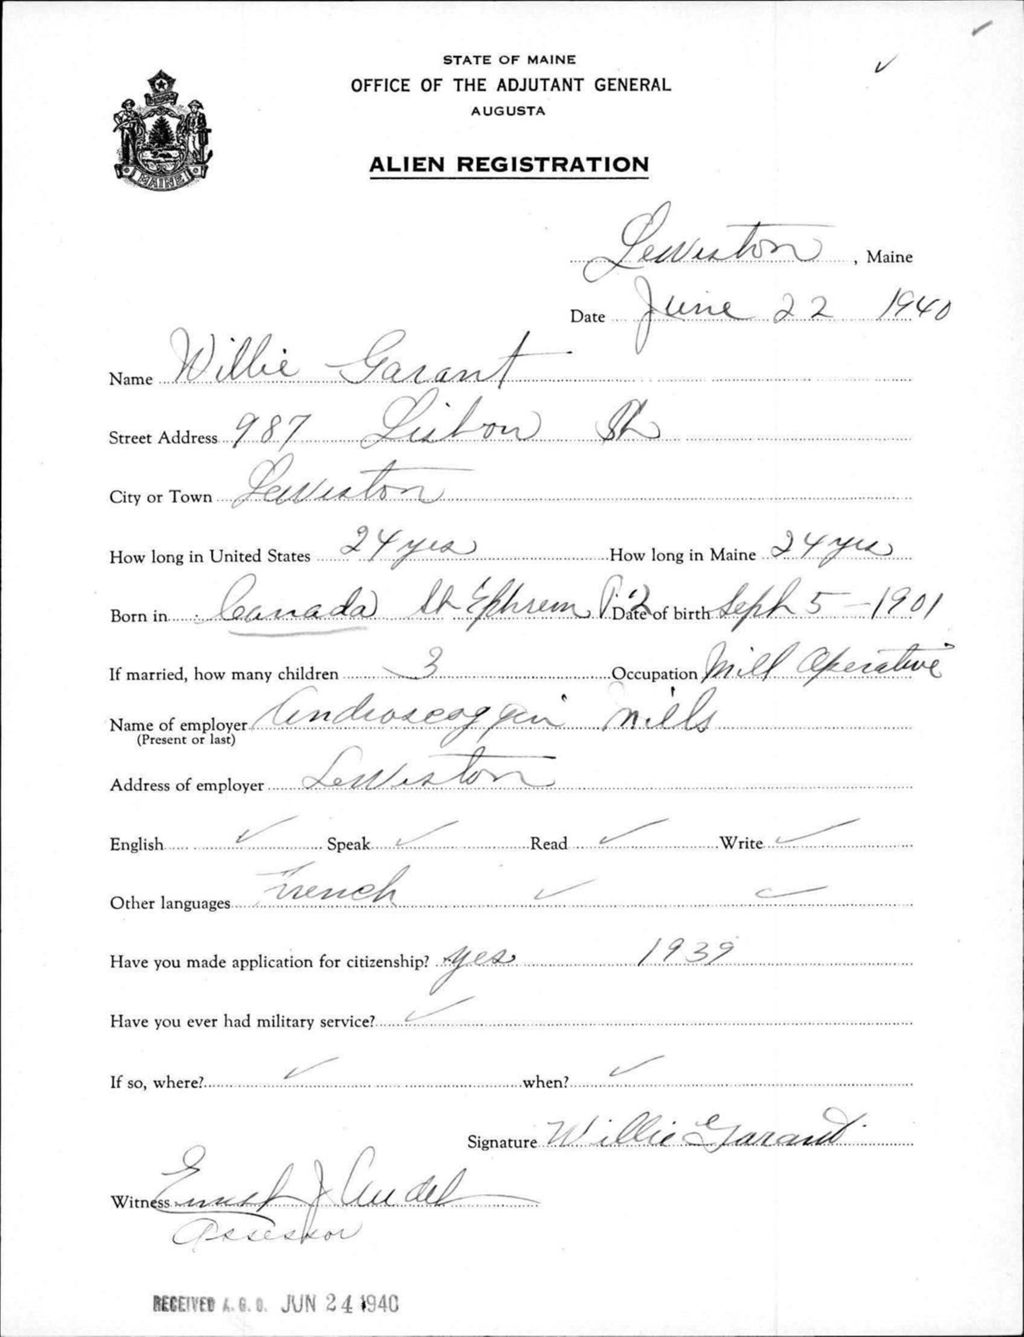 STATE OF MAINE
OFFICE OF THE ADJUTANT GENERAL
AUGUSTA
ALIEN REGISTRATION
MAINE
Lewiston, Maine
Date June 22 1940
Name Willie Garant
Street Address 987 Lisbon St
City or Town Lewiston
How long in United States 24 yrs How long in Maine 24 yrs
Born in Canada St Ephrem P.2 Date of birth Sept 5 - 1901
If married, how many children 3 Occupation Mill Operative
Name of employer Androscoggin Mills
(Present or last)
Address of employer Lewiston
English ✓ Speak ✓ Read ✓ Write ✓
Other languages French ✓ ✓
Have you made application for citizenship? yes 1939
Have you ever had military service? ✓
If so, where? ✓ when? ✓
Signature Willie Garant
Witness Ernest J Audet
Assessor
RECEIVED A.G.O. JUN 24 1940